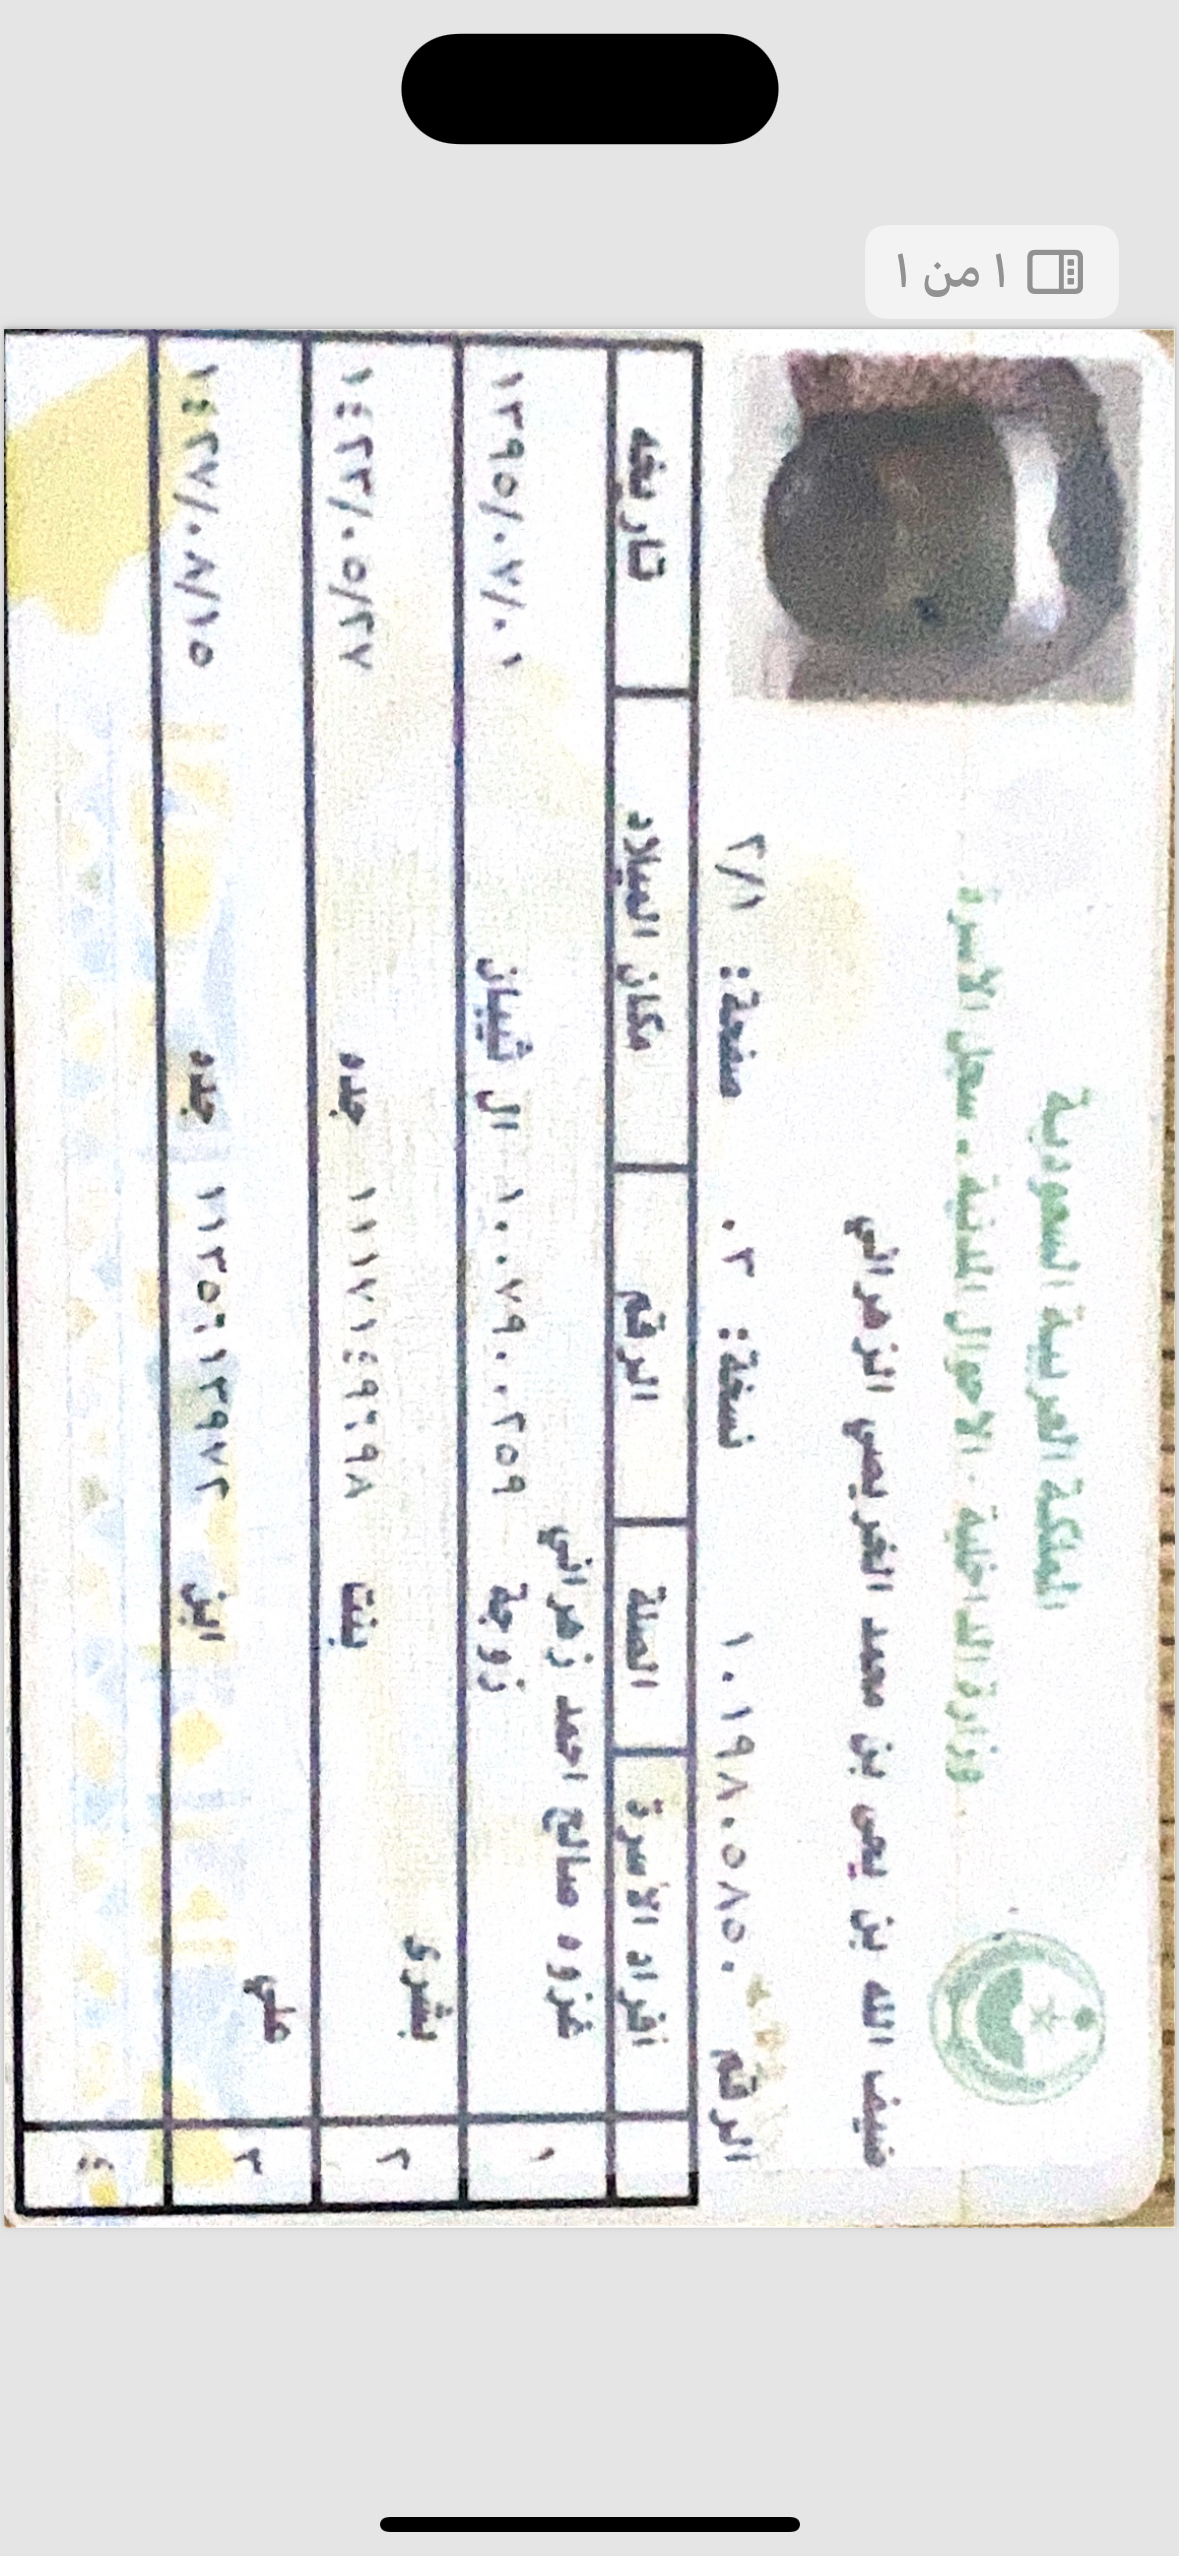 ١ من ١
المملكة العربية السعودية
وزارة الداخلية - الأحوال المدنية - سجل الأسرة
ضيف الله بن يحي بن محمد الغريبي الزهراني
الرقم ١٠١٩٨٠٥٨٥٠ نسخة: ٠٣ صفحة: ٢/١
أفراد الأسرة الصلة الرقم مكان الميلاد تاريخه
١ غزوه صالح احمد زهراني
زوجة ١٠٠٧٩٠٠٢٥٩ ال شيبان ١٣٩٥/٠٧/٠١
٢ بشرى
بنت ١١١٧١٤٩٦٩٨ جده ١٤٢٢/٠٥/٢٧
٣ علي
ابن ١١٣٥٦١٣٩٧٢ جده ١٤٢٧/٠٨/١٥
٤